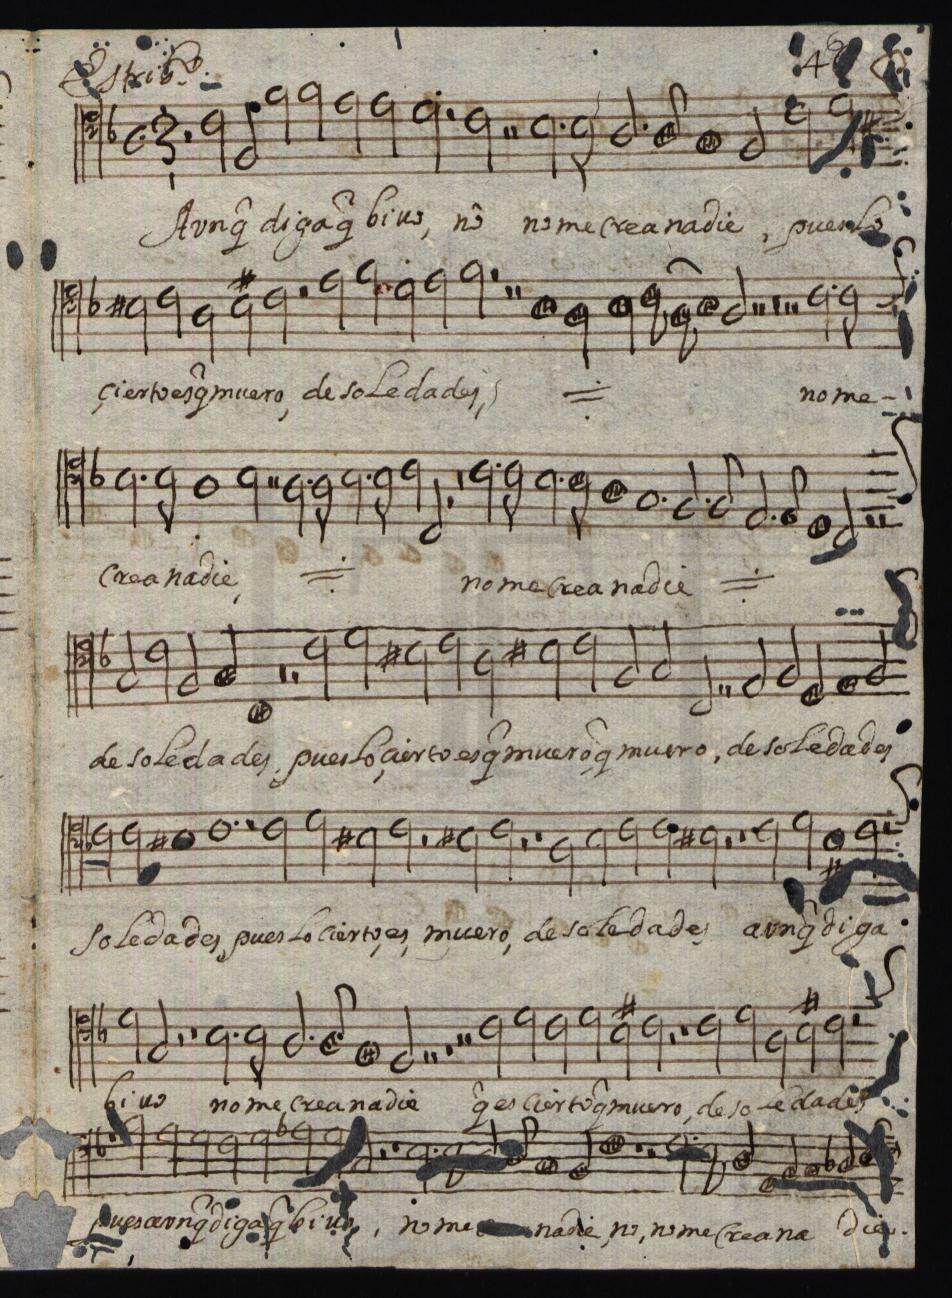 Estribo.
Avnq̃ diga q̃ bivo, no no me crea nadie, pues lo
çierto es q̃ muero, de soledades,
no me
crea nadie, no me crea nadie
de soledades, pues lo çierto es q̃ muero, q̃ muero, de soledades
soledades, pues lo cierto, es, muero, de soledades avnq̃ diga
bivo no me crea nadie q̃ es cierto q̃ muero, de soledades
pues avnq̃ diga q̃ bivo, no me nadie no, no me crea na die.